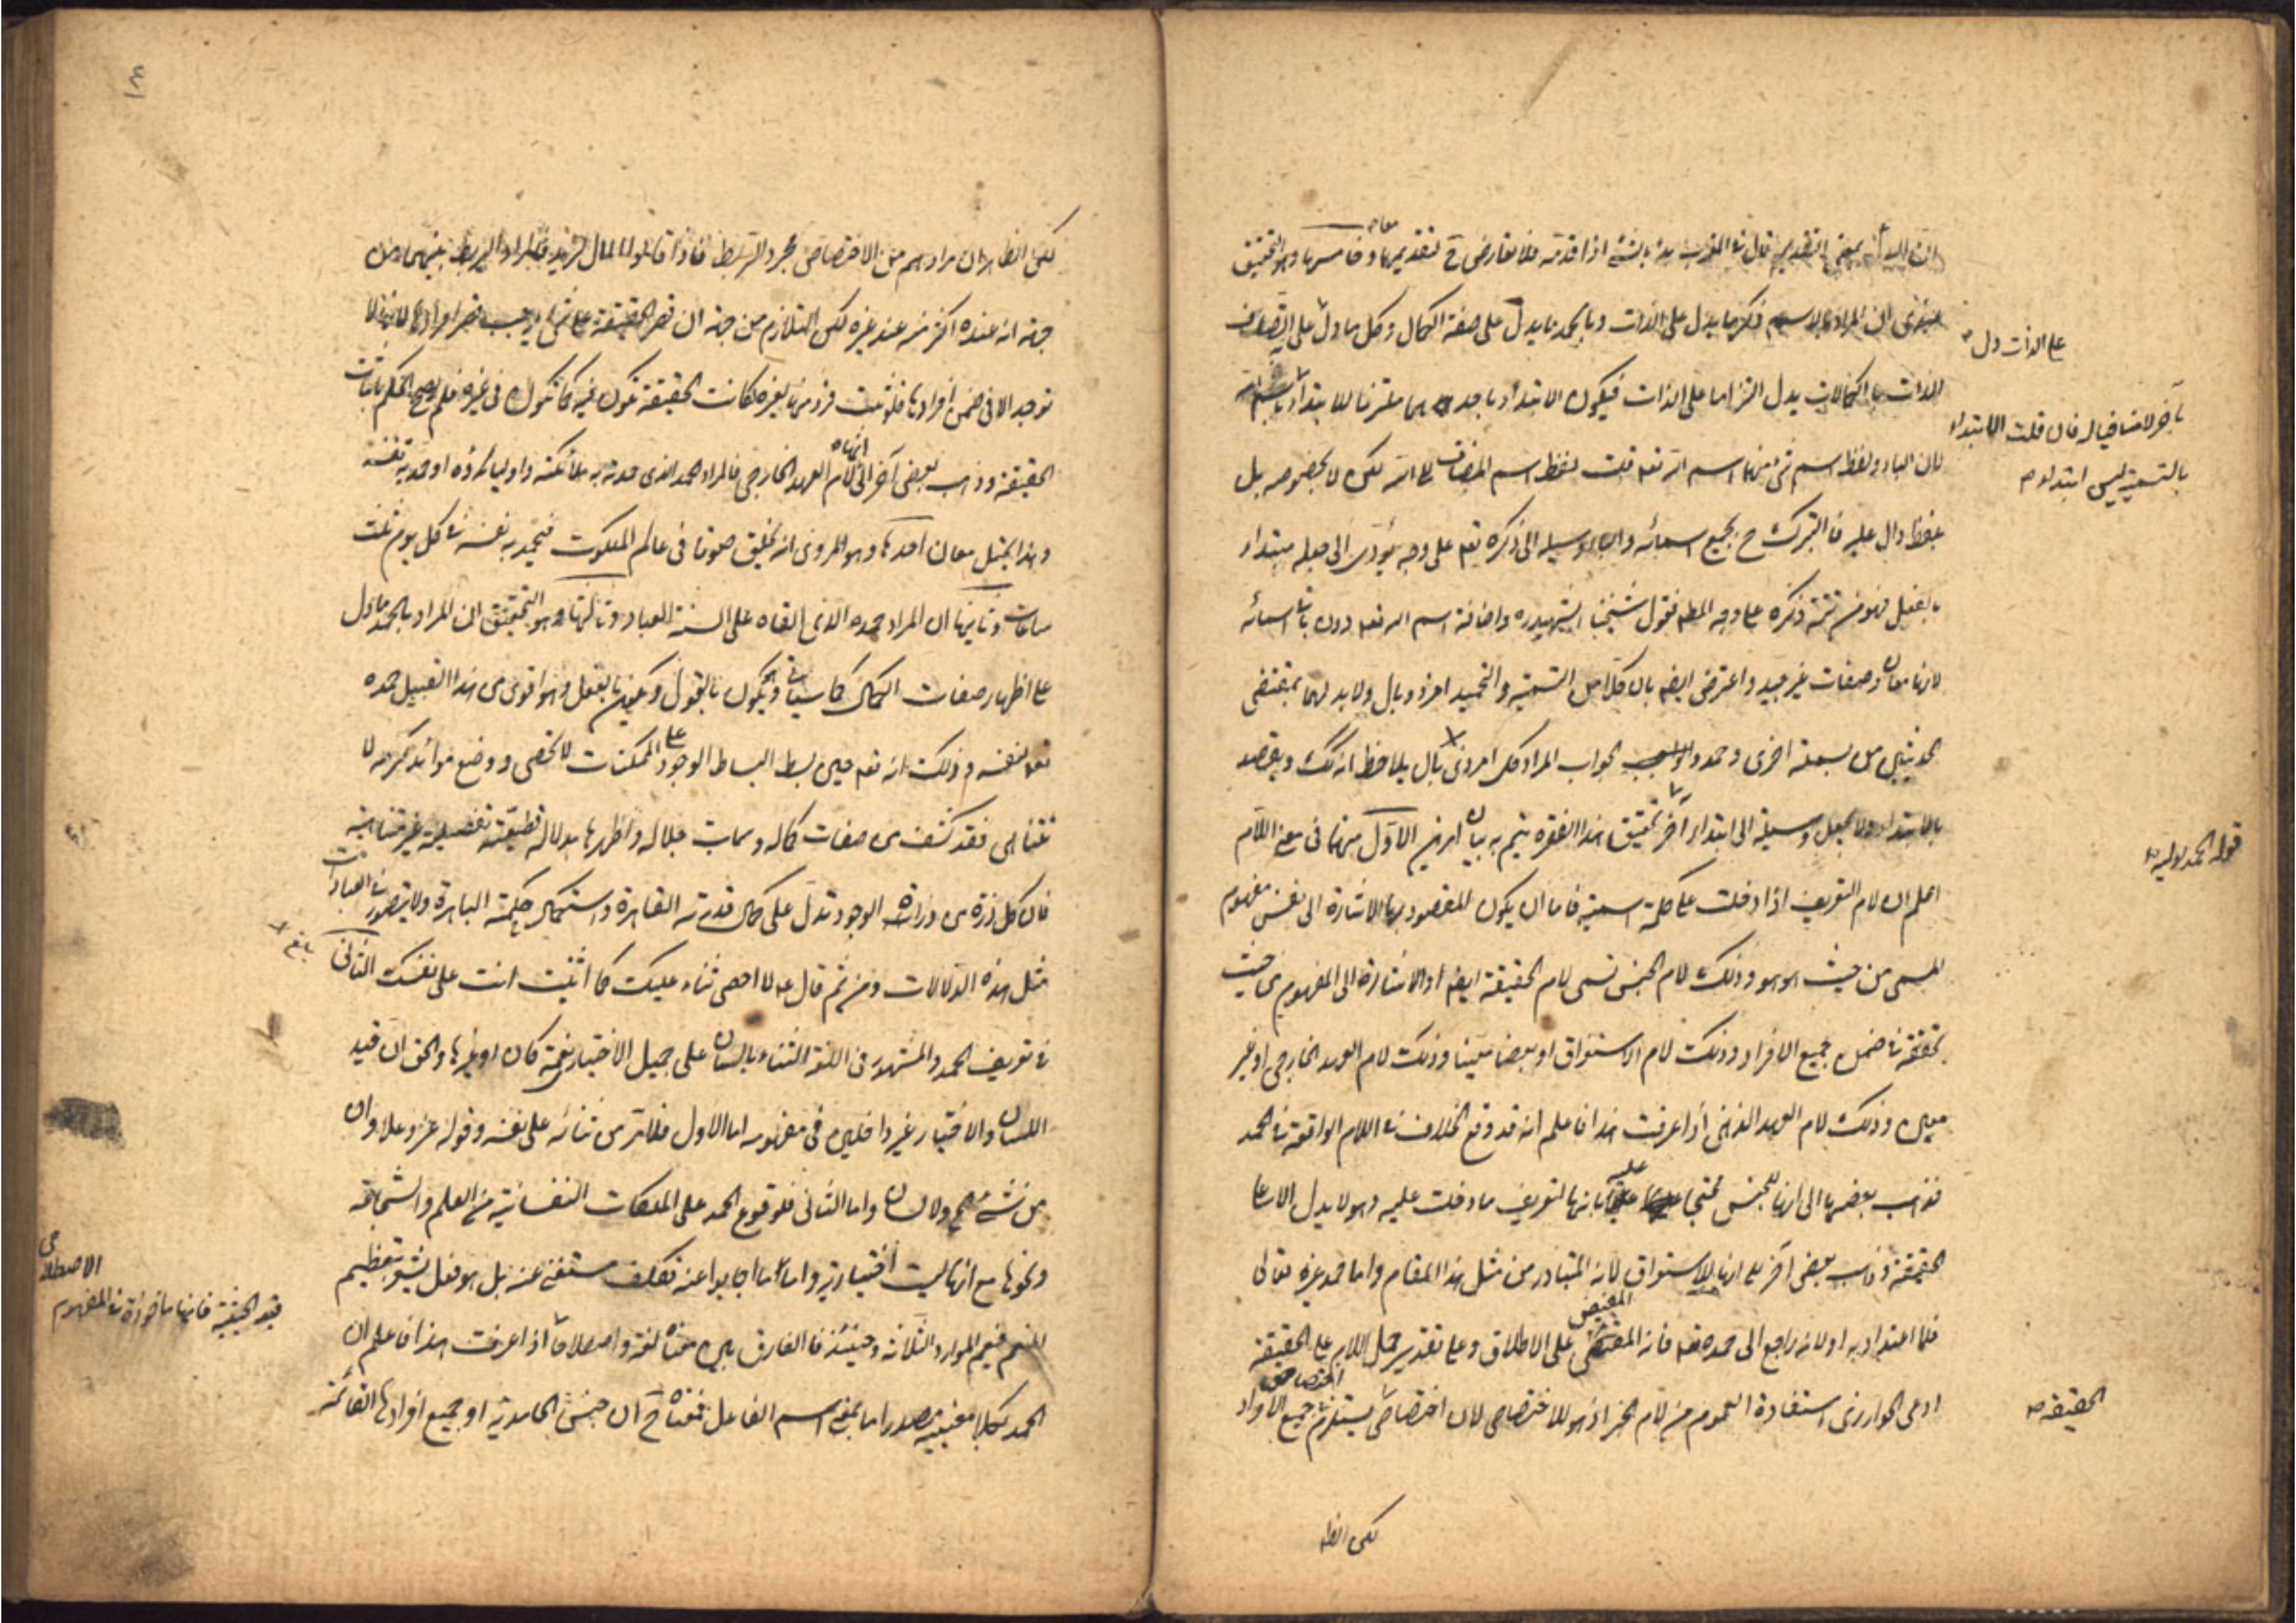 ان البدأ بمعنى التقديم قال في المغرب بدأ بالشئ اذا قدمه فلا تعارض ح لتقديمهما معا وخامسها وهو التحقيق
عندي ان المراد بالاسم ذكر ما يدل على الذات وبالحمد ما يدل على صفة الكمال وكل ما دل على اتصاف
على الذات دل
الذات بالكمالات يدل التزاما على الذات فيكون الابتداء باحدهما مستلزما للابتداء
بآخر لامنافيا له فان قلت الابتداء
بالتسمية ليس ابتداء
لان الباء ولفظ اسم شئ منهما اسم الله تعه قلت لفظ اسم المضاف الى الله لكن لا بخصوصه بل
بلفظ دال عليه فالتبرك ح بجميع اسمائه والباء وسيلة الى ذكره تعه على وجه يؤدى الى جعله مبتداء
بالفعل فهو من تتمة ذكره على وجه المطه فقول شيخنا الشهيد ره واضافة اسم الله تعه دون باقى اسمائه
لانها معان وصفات غير جيد واعترض ايضه بان كلا من التسمية والتحميد امر ذو بال ولابد لهما بمقتضى
الحديثين من بسملة اخرى وحمد والجواب المراد كل امر ذي بال يلاحظ انه كك ويقصد
بالابتداء ولا يجعل وسيلة الى ابتداء آخر تحقيق هذا الفقره يتم به بيان امرين الاول منهما في معنى اللام
قوله الحمد لوليه
اعلم ان لام التعريف اذا دخلت على كلمة اسمية فاما ان يكون المقصود بها الاشارة الى نفس مفهوم
المسمى من حيث هو هو وذلك لام الجنس تسمى لام الحقيقة ايضه او الاشارة الى المفهوم من حيث
تحققه في ضمن جميع الافراد وذلك لام الاستغراق او بعضا معينا وذلك لام العهد الخارجي او غير
معين وذلك لام العهد الذهني اذا عرفت هذا فاعلم انه قد وقع الخلاف في اللام الواقعة في الحمد
فذهب بعضهم الى انها للجنس محتجا عليه بانها لتعريف ما دخلت عليه وهو لا يدل الا على
الحقيقة وذهب بعض آخر الى انها للاستغراق لانه المتبادر من مثل هذا المقام واما حمد غيره تعالى
فلا اعتداد به او لانه راجع الى حمده تعه فانه المفيض على الاطلاق وعلى تقدير حمل اللام على الحقيقة
ادعى الخوارزمي استفادة العموم من لام الجر اذ هو للاختصاص لان اختصاص يستلزم اختصاص جميع الافراد
الحقيقة
لكن الظه
لكن الظاهر ان مرادهم من الاختصاص مجرد الربط فاذا قالوا المال لزيد فالمراد الربط بينهما من
جهة انه عنده اكثر منه عند غيره لكن التلازم من جهة ان قصر الحقيقة على شئ يوجب قصر افرادها لانها لا
توجد الا في ضمن افرادها فلو ثبت فرد منها لغيره لكانت الحقيقة تكون فيه كما تكون في غيره فلم يصح الحكم باثبات
الحقيقة وذهب بعض آخر الى انها لام العهد الخارجي فالمراد الحمد الذى حمدته به ملائكته واولياؤه او حمد به نفسه
وهذا يحتمل معان احدها وهو المروى انه يخلق صوتا في عالم الملكوت فيحمد به نفسه في كل يوم ثلث
ساعات وثانيها ان المراد حمده الذى القاه على السنة العباد وثالثها وهو التحقيق ان المراد بالحمد ما دل
على اظهار صفات الكمال كما سياتى ويكون بالقول وبالفعل وهو اقوى من هذا القبيل حمده
تعه لنفسه وذلك انه تعه حين بسط البساط الوجود على الممكنات لا تحصى ووضع موائد كرمه لا
تتناهى فقد كشف من صفات كماله وسمات جلاله واظهرها بدلالة قطيعية تفصيلية غير متناهية
فان كل ذرة من ذرات الوجود تدل على كمال قدرته القاهرة واستكمال حكمته الباهرة ولا يتصور في العبارات
مثل هذه الدلالات ومن ثم قال ع لا احصى ثناء عليك كما اثنيت انت على نفسك الثاني
بلغ
في تعريف الحمد والمشهور في اللغة الثناء باللسان على جميل الاختيار نعمة كان او غيرها والحق ان قيد
اللسان والاختيار غير داخلين في مفهومه اما الاول فلا ترى من ثنائه على نفسه وقوله عز وعلا وان
من شئ الا يسبح ولا لسان واما الثاني فلوقوع الحمد على الملكات النفسانية من العلم والشجاعة
ونحوها مع انها ليست اختيارية واما ما اجابوا عنه تكلف مستغنى عنه بل هو فعل يشعر بتعظيم
المنعم فيعم الموارد الثلاثة وحينئذ فالفارق بين معناه لغة واصطلاحا
قيد الحيثية فانها ماخوذة في المفهوم
الاصطلاحى
اذا عرفت هذا فاعلم ان
الحمد بكلا معنييه مصدر اما بمعنى اسم الفاعل فمعناه ح ان جنس الحامدية او جميع افرادها القائمة